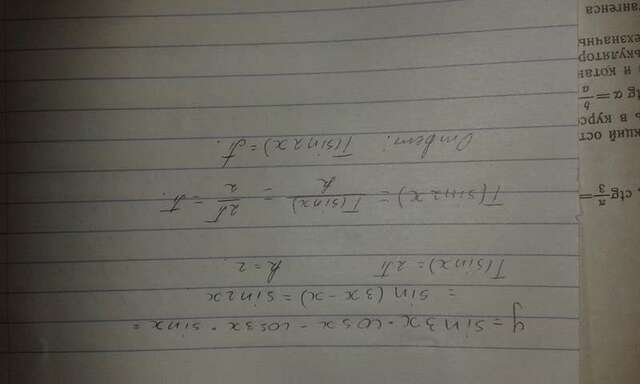 y = sin3x · cosx - cos3x · sinx =
= sin(3x - x) = sin2x
T(sinx) = 2π k = 2
T(sin2x) = T(sinx)/k = 2π/2 = π.
Ответ: T(sin2x) = π.
ctg π/3 =
кций ост
ь в курс
tg α = b/a
и котан
ькулятор
ехзначны
нгенса